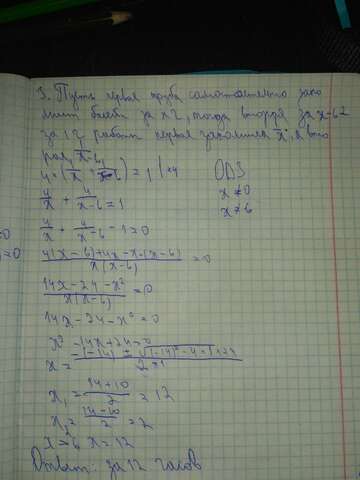 3. Пусть первая труба самостоятельно запо
лнит бассейн за x г, тогда вторая за x-6 г
за 1 г работы первая заполнит 1/x, а вто
рая 1/x-6
4 = (1/x + 1/x-6) = 1 | x4
ОДЗ
4/x + 4/x-6 = 1
x ≠ 0
x ≠ 6
4/x + 4/x-6 - 1 = 0
4(x-6)+4x-x(x-6) / x(x-6) = 0
14x-24-x² / x(x-6) = 0
14x-24-x² = 0
x² - 14x + 24 = 0
x = -(-14) ± √(-14)² - 4·1·24 / 2·1
x₁ = 14+10 / 2 = 12
x₂ = 14-10 / 2 = 2
x = 12
Ответ: за 12 часов